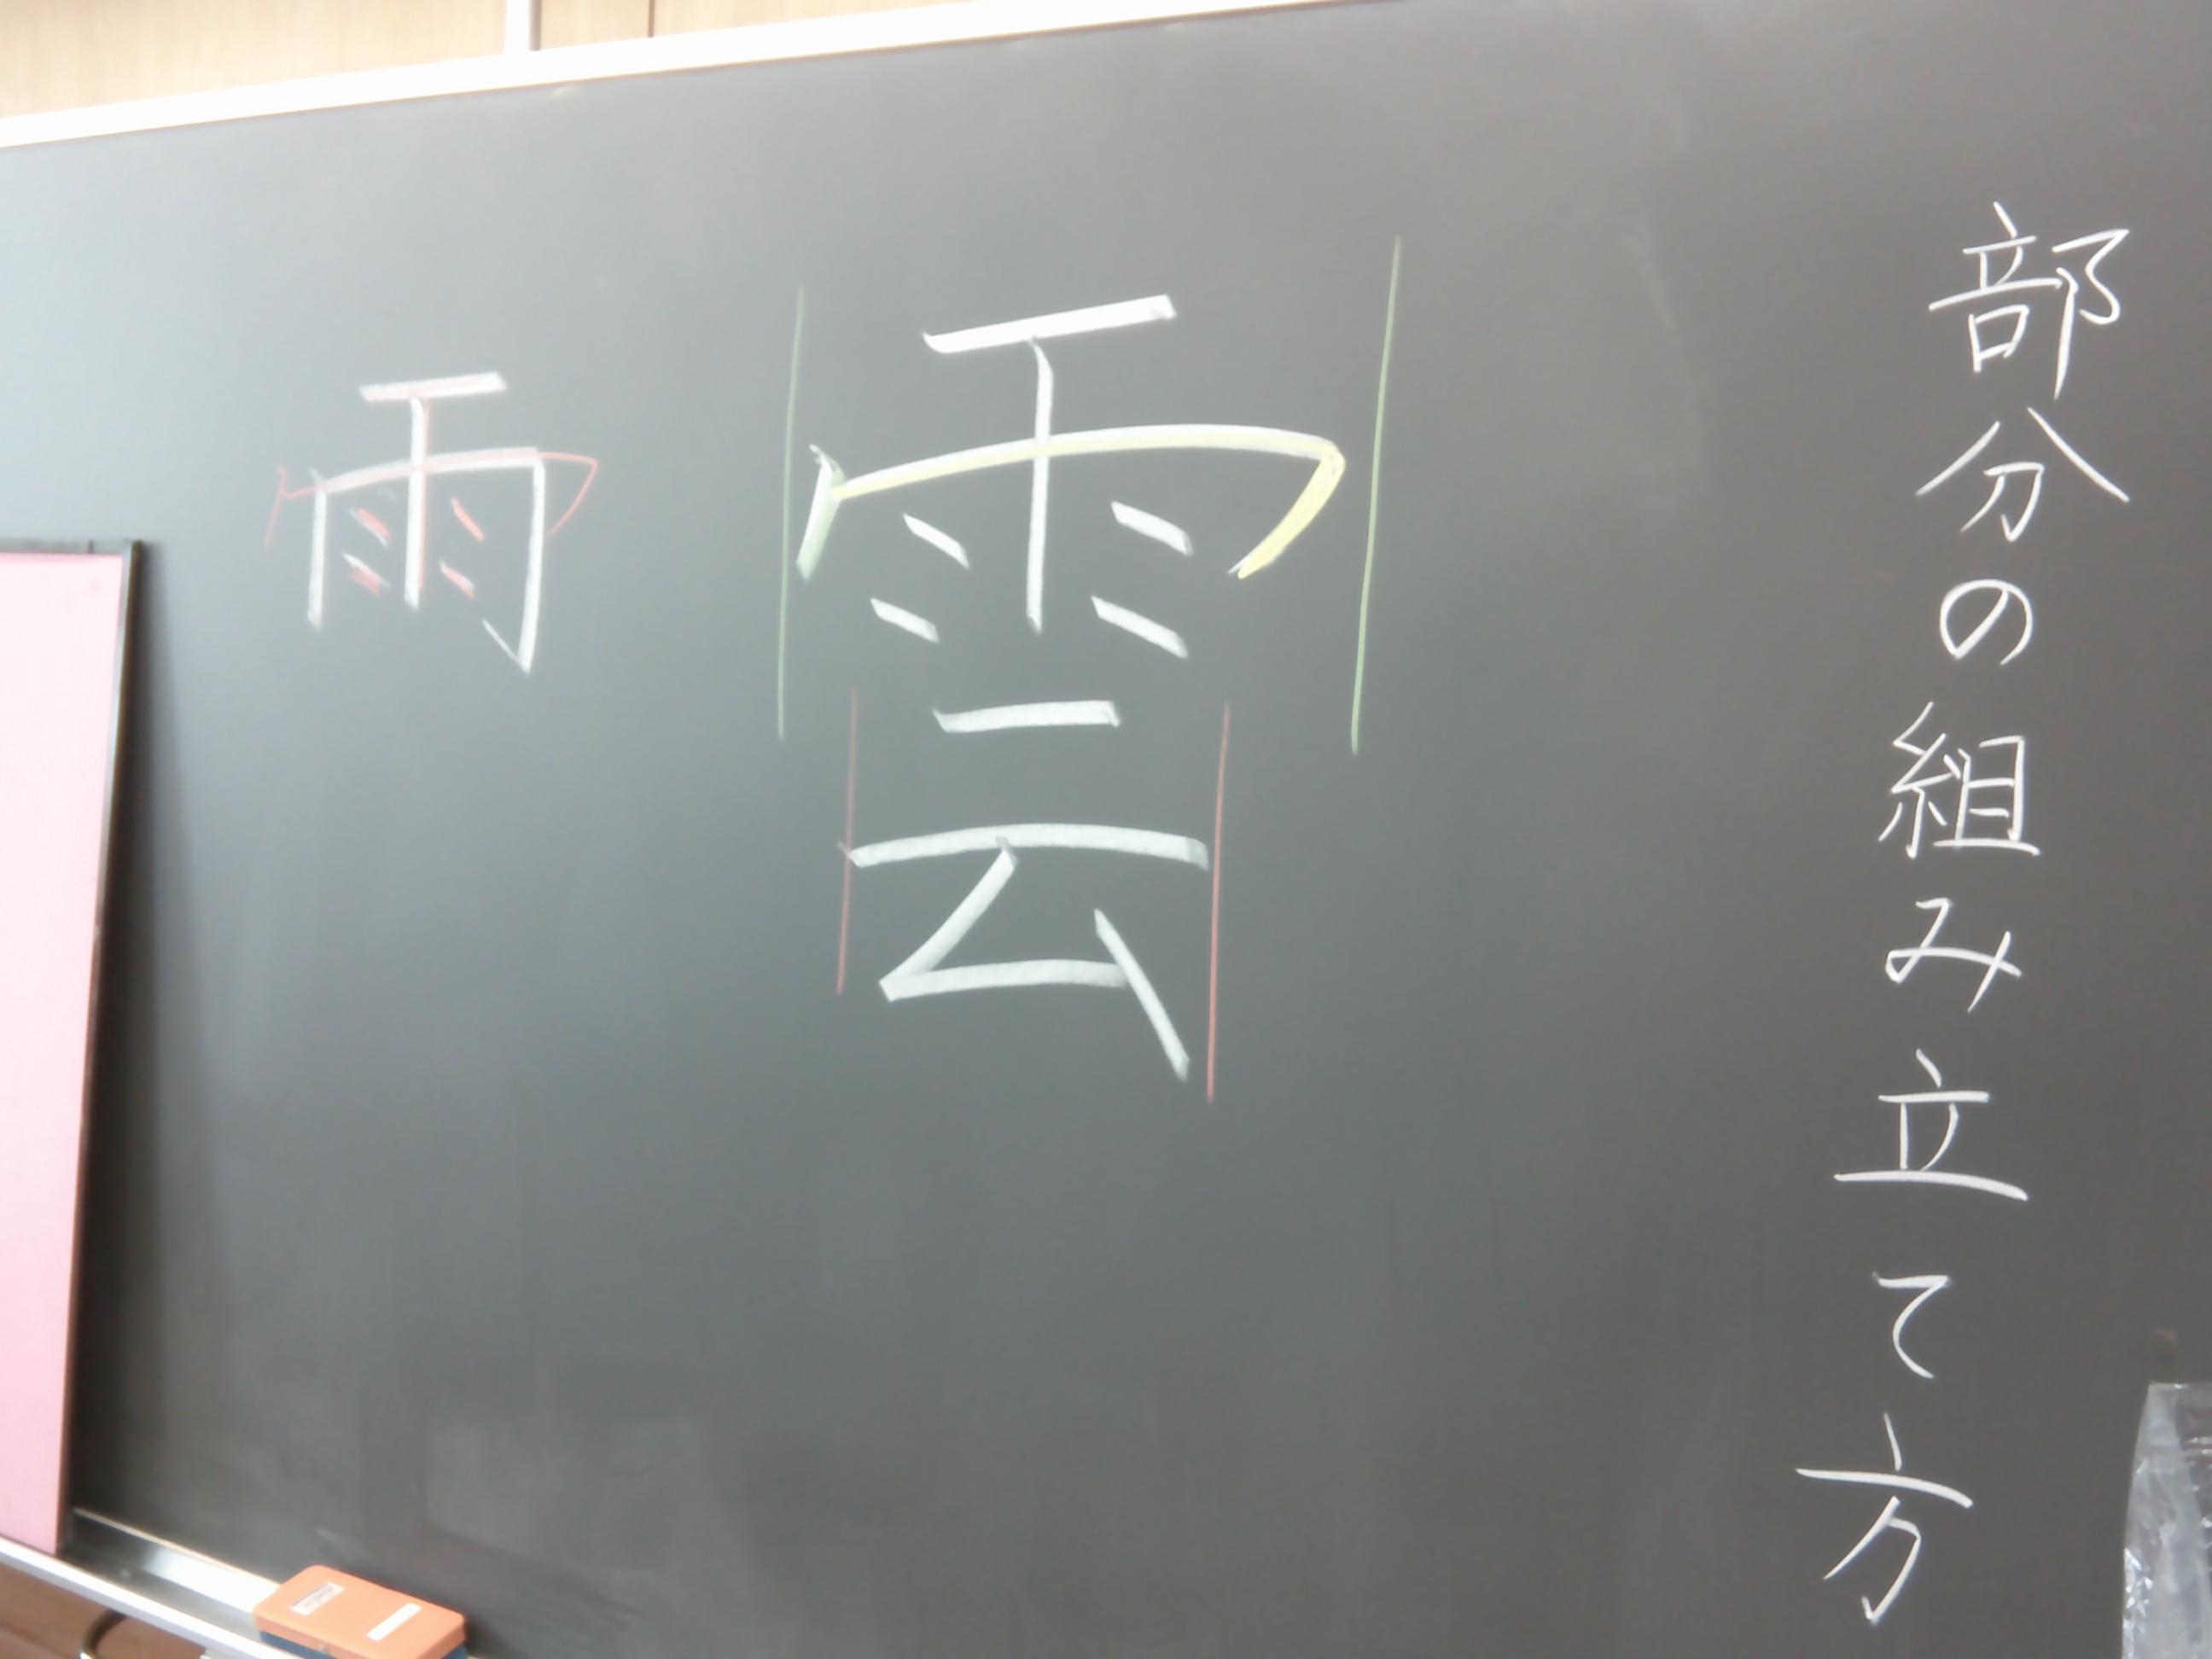 部分の組み立て方
雲
雨